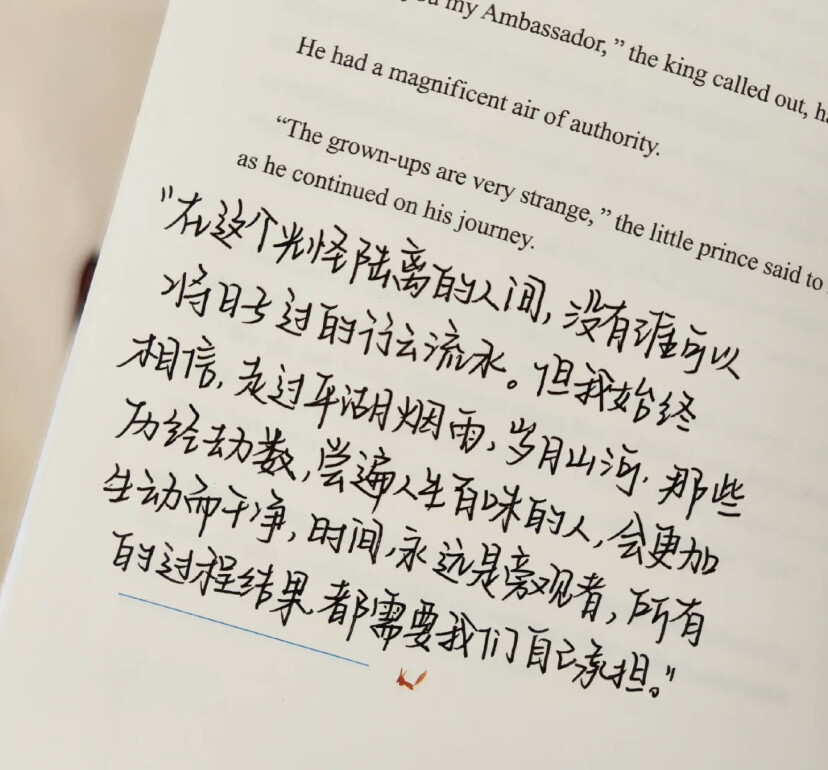 my Ambassador,” the king called out,
He had a magnificent air of authority.
“The grown-ups are very strange,” the little prince said to
as he continued on his journey.
"在这个光怪陆离的人间,没有谁可以
将日子过的行云流水。但我始终
相信,走过平湖烟雨,岁月山河.那些
历经劫数,尝遍人生百味的人,会更加
生动而干净,时间,永远是旁观者,所有
的过程结果都需要我们自己承担。"